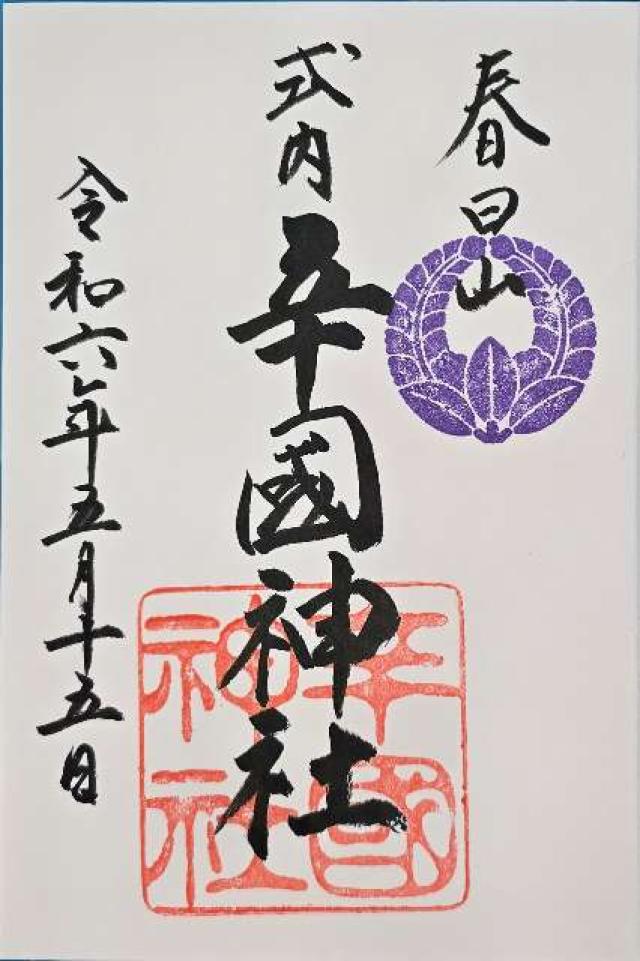 春日山
式内
辛國神社
令和六年五月十五日
辛國
神社